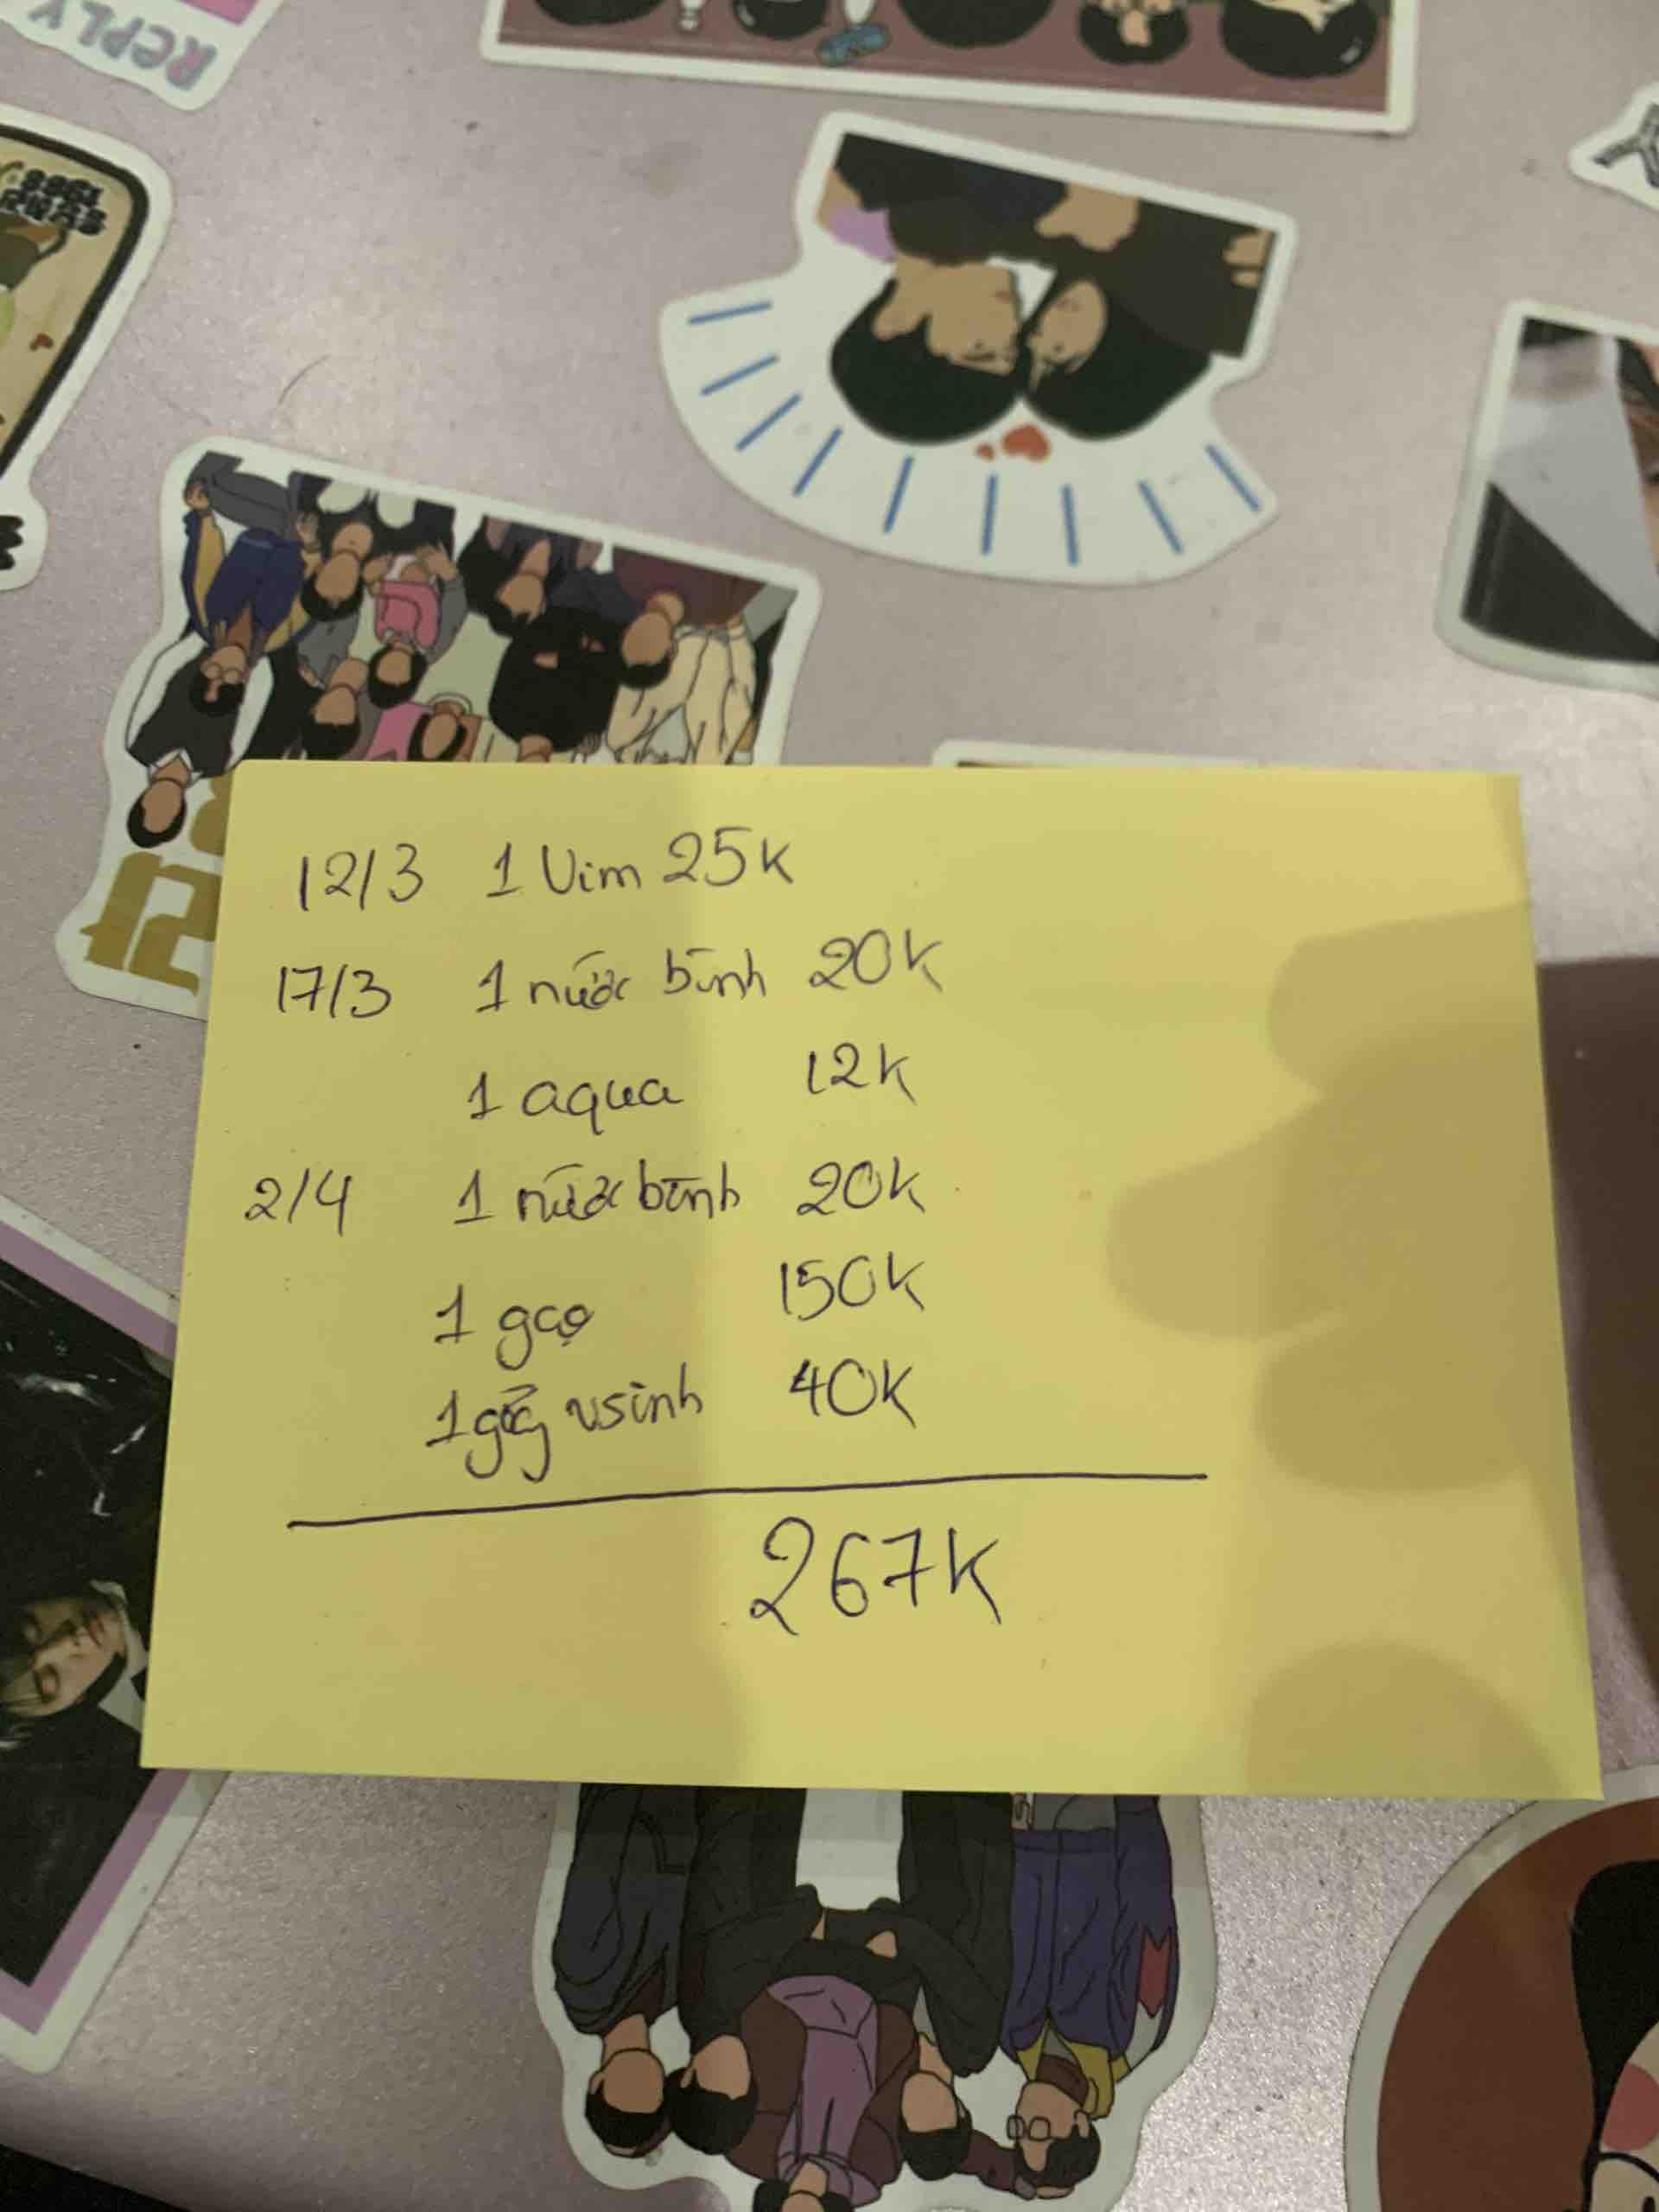 REPLY
12/3 1 Vim 25k
17/3 1 nước bình 20k
1 aqua 12k
2/4 1 nước bình 20k
1 gạo 150k
1 giấy vsinh 40k
267k